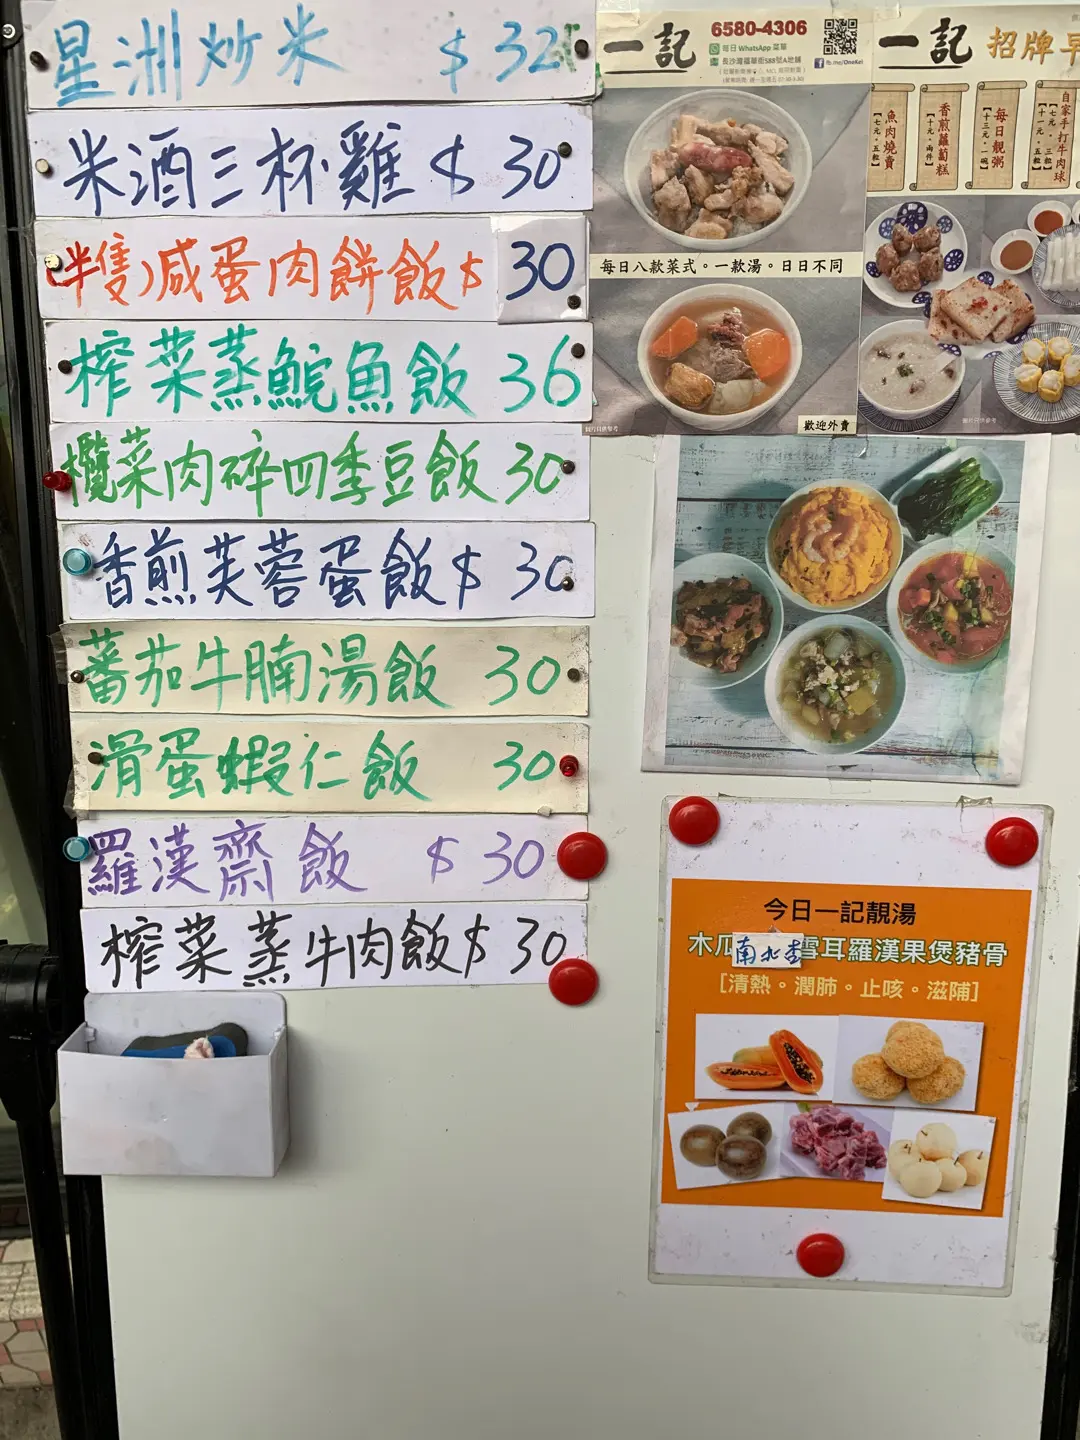 星洲炒米 $32
米酒三杯雞 $30
(半隻)咸蛋肉餅飯$ 30
榨菜蒸鯇魚飯 36
欖菜肉碎四季豆飯 30
香煎芙蓉蛋飯$ 30
蕃茄牛腩湯飯 30
滑蛋蝦仁飯 30
羅漢齋飯 $30
榨菜蒸牛肉飯$30
一記
6580-4306
每日 WhatsApp 菜單
長沙灣福華街588號A地舖
fb.me/OneKei
每日八款菜式。一款湯。日日不同
歡迎外賣
圖片只供參考
一記 招牌早
自家手打牛肉球
【七元。三粒】
【十一元。五粒】
每日靚粥
【十三元。一碗】
香煎蘿蔔糕
【十元。兩件】
魚肉燒賣
【七元。五粒】
圖片只供參考
今日一記靚湯
木瓜南北杏雪耳羅漢果煲豬骨
[清熱。潤肺。止咳。滋陰]